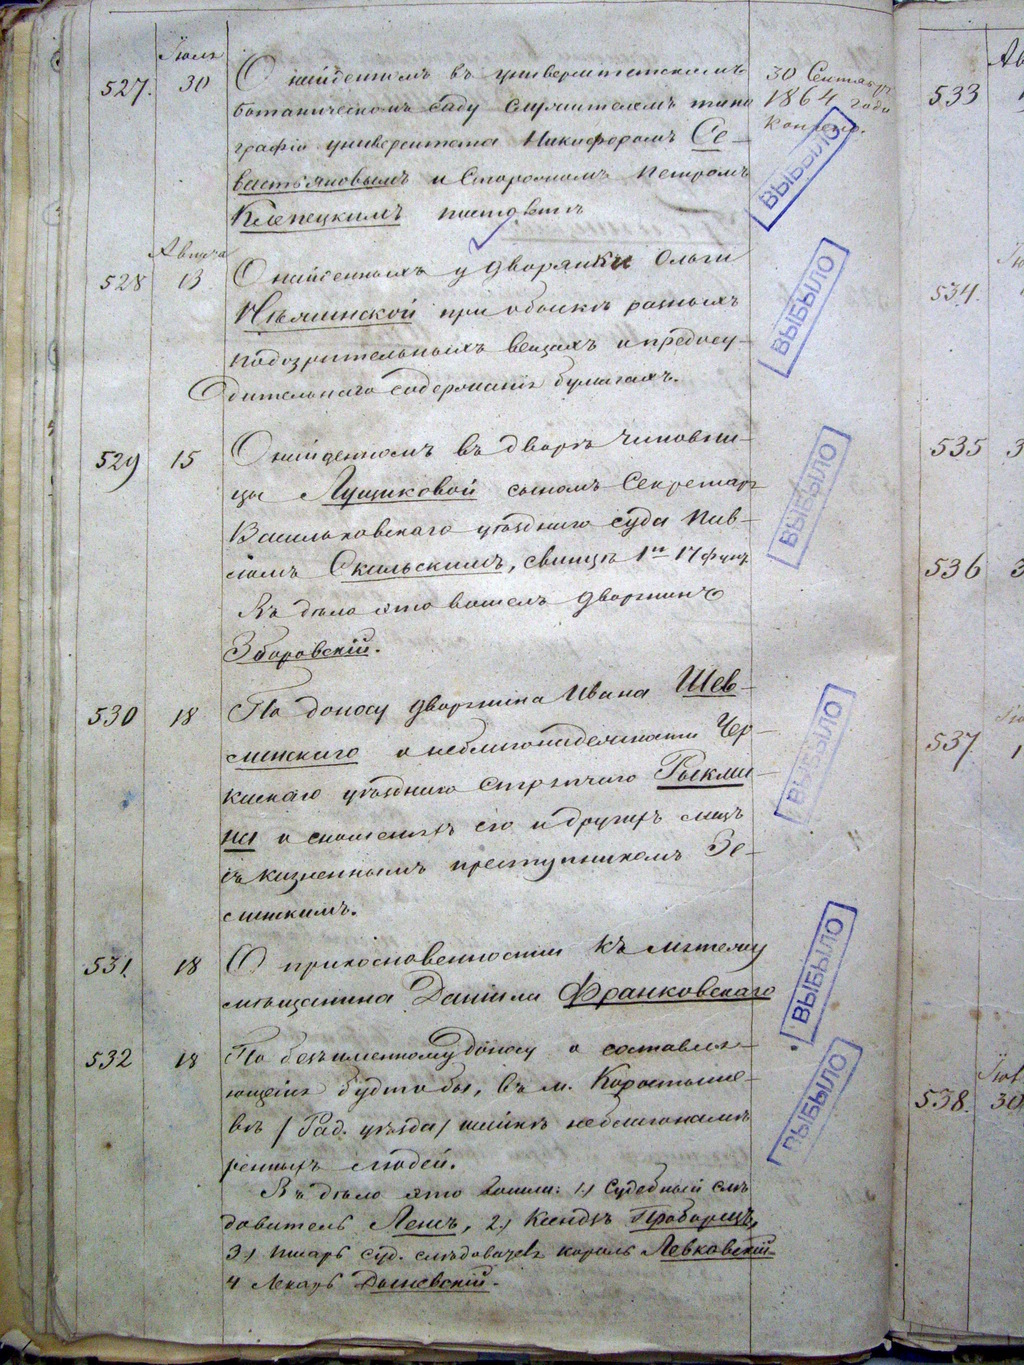 Іюля
527. 30 О найденномъ въ университетскомъ
ботаническомъ саду служителемъ типо
графіи университета Никифоромъ Се-
вастьяновымъ и Сторожомъ Петромъ
Клепецкимъ
30 Сентября
1864 года
Кончено.
ВЫБЫЛО
Августа
528 13 О найденныхъ у дворянки Ольги
при обыскѣ разныхъ
подозрительныхъ вещахъ и предосу-
дительнаго содержанія бумагахъ.
ВЫБЫЛО
529 15 О найденномъ въ дворѣ чиновни-
цы Лущиковой сыномъ Секретаря
Васильковскаго уѣзднаго суда Пав-
ломъ Скальскимъ, свинцѣ 1 п 17 фун.
Въ дѣло это вошелъ дворянинъ
Зборовскій.
ВЫБЫЛО
530 18 По доносу дворянина Ивана Шев-
линскаго о неблагонадежности Чер-
каскаго уѣзднаго стряпчаго
и сношеніяхъ его и другихъ лицъ
съ казненнымъ преступникомъ Зе-
линскимъ.
ВЫБЫЛО
531 18 О прикосновенности къ мятежу
мѣщанина Даніила Франковскаго
ВЫБЫЛО
532 18 По безъименному доносу о составля-
ющейся будто бы, въ м. Коростыше-
вѣ / Рад. уѣзда / шайкѣ неблагонамѣ
ренныхъ людей.
Въ дѣло это вошли: 1.) Судебный слѣ
дователь Ленъ, 2.) Ксендзъ
3.) писарь суд. слѣдователя король Левковскій
4 Лекарь Дашевскій.
ВЫБЫЛО
533
534.
535 3
536 3
537 1
538. 30